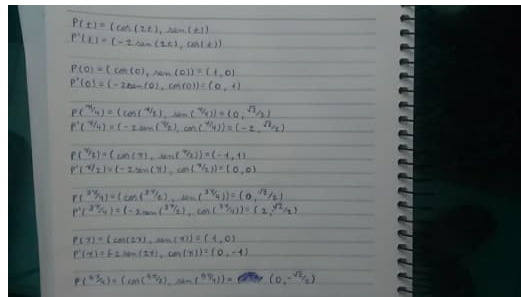 P(t)=(cos(2t), sen(t))
P'(t)=(-2sen(2t), cos(t))
P(0)=(cos(0), sen(0))=(1,0)
P'(0)=(-2sen(0), cos(0))=(0,1)
P(π/4)=(cos(π/2), sen(π/4))=(0,√2/2)
P'(π/4)=(-2sen(π/2), cos(π/4))=(-2,√2/2)
P(π/2)=(cos(π), sen(π/2))=(-1,1)
P'(π/2)=(-2sen(π), cos(π/2))=(0,0)
P(3π/4)=(cos(3π/2), sen(3π/4))=(0,√2/2)
P'(3π/4)=(-2sen(3π/2), cos(3π/4))=(2,√2/2)
P(π)=(cos(2π), sen(π))=(1,0)
P'(π)=(-2sen(2π), cos(π))=(0,-1)
P(5π/4)=(cos(5π/2), sen(5π/4))= (0,-√2/2)